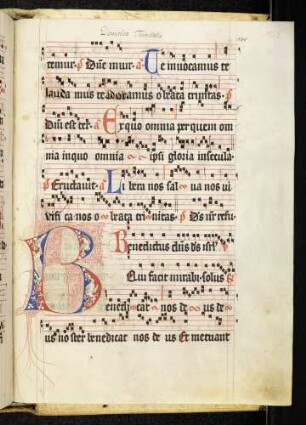 Dominica Trinitatis
temur · p̄ Dn̄e miur · a Te inuocamus te
lauda mus te adoramus o beata trinitas · p̄
Dn̄i est ter · a Ex quo omnia per quem om
nia in quo omnia ipsi gloria in secula
p̄ Eructauit · a Libera nos sal ua nos ui
uifi ca nos o beata trinitas · p̄ Ds nr̄ refu
Benedictus dn̄s ds isrl
Qui facit mirabi · solus
Benedi cat nos de us de
us no ster benedicat nos de us Et metuant